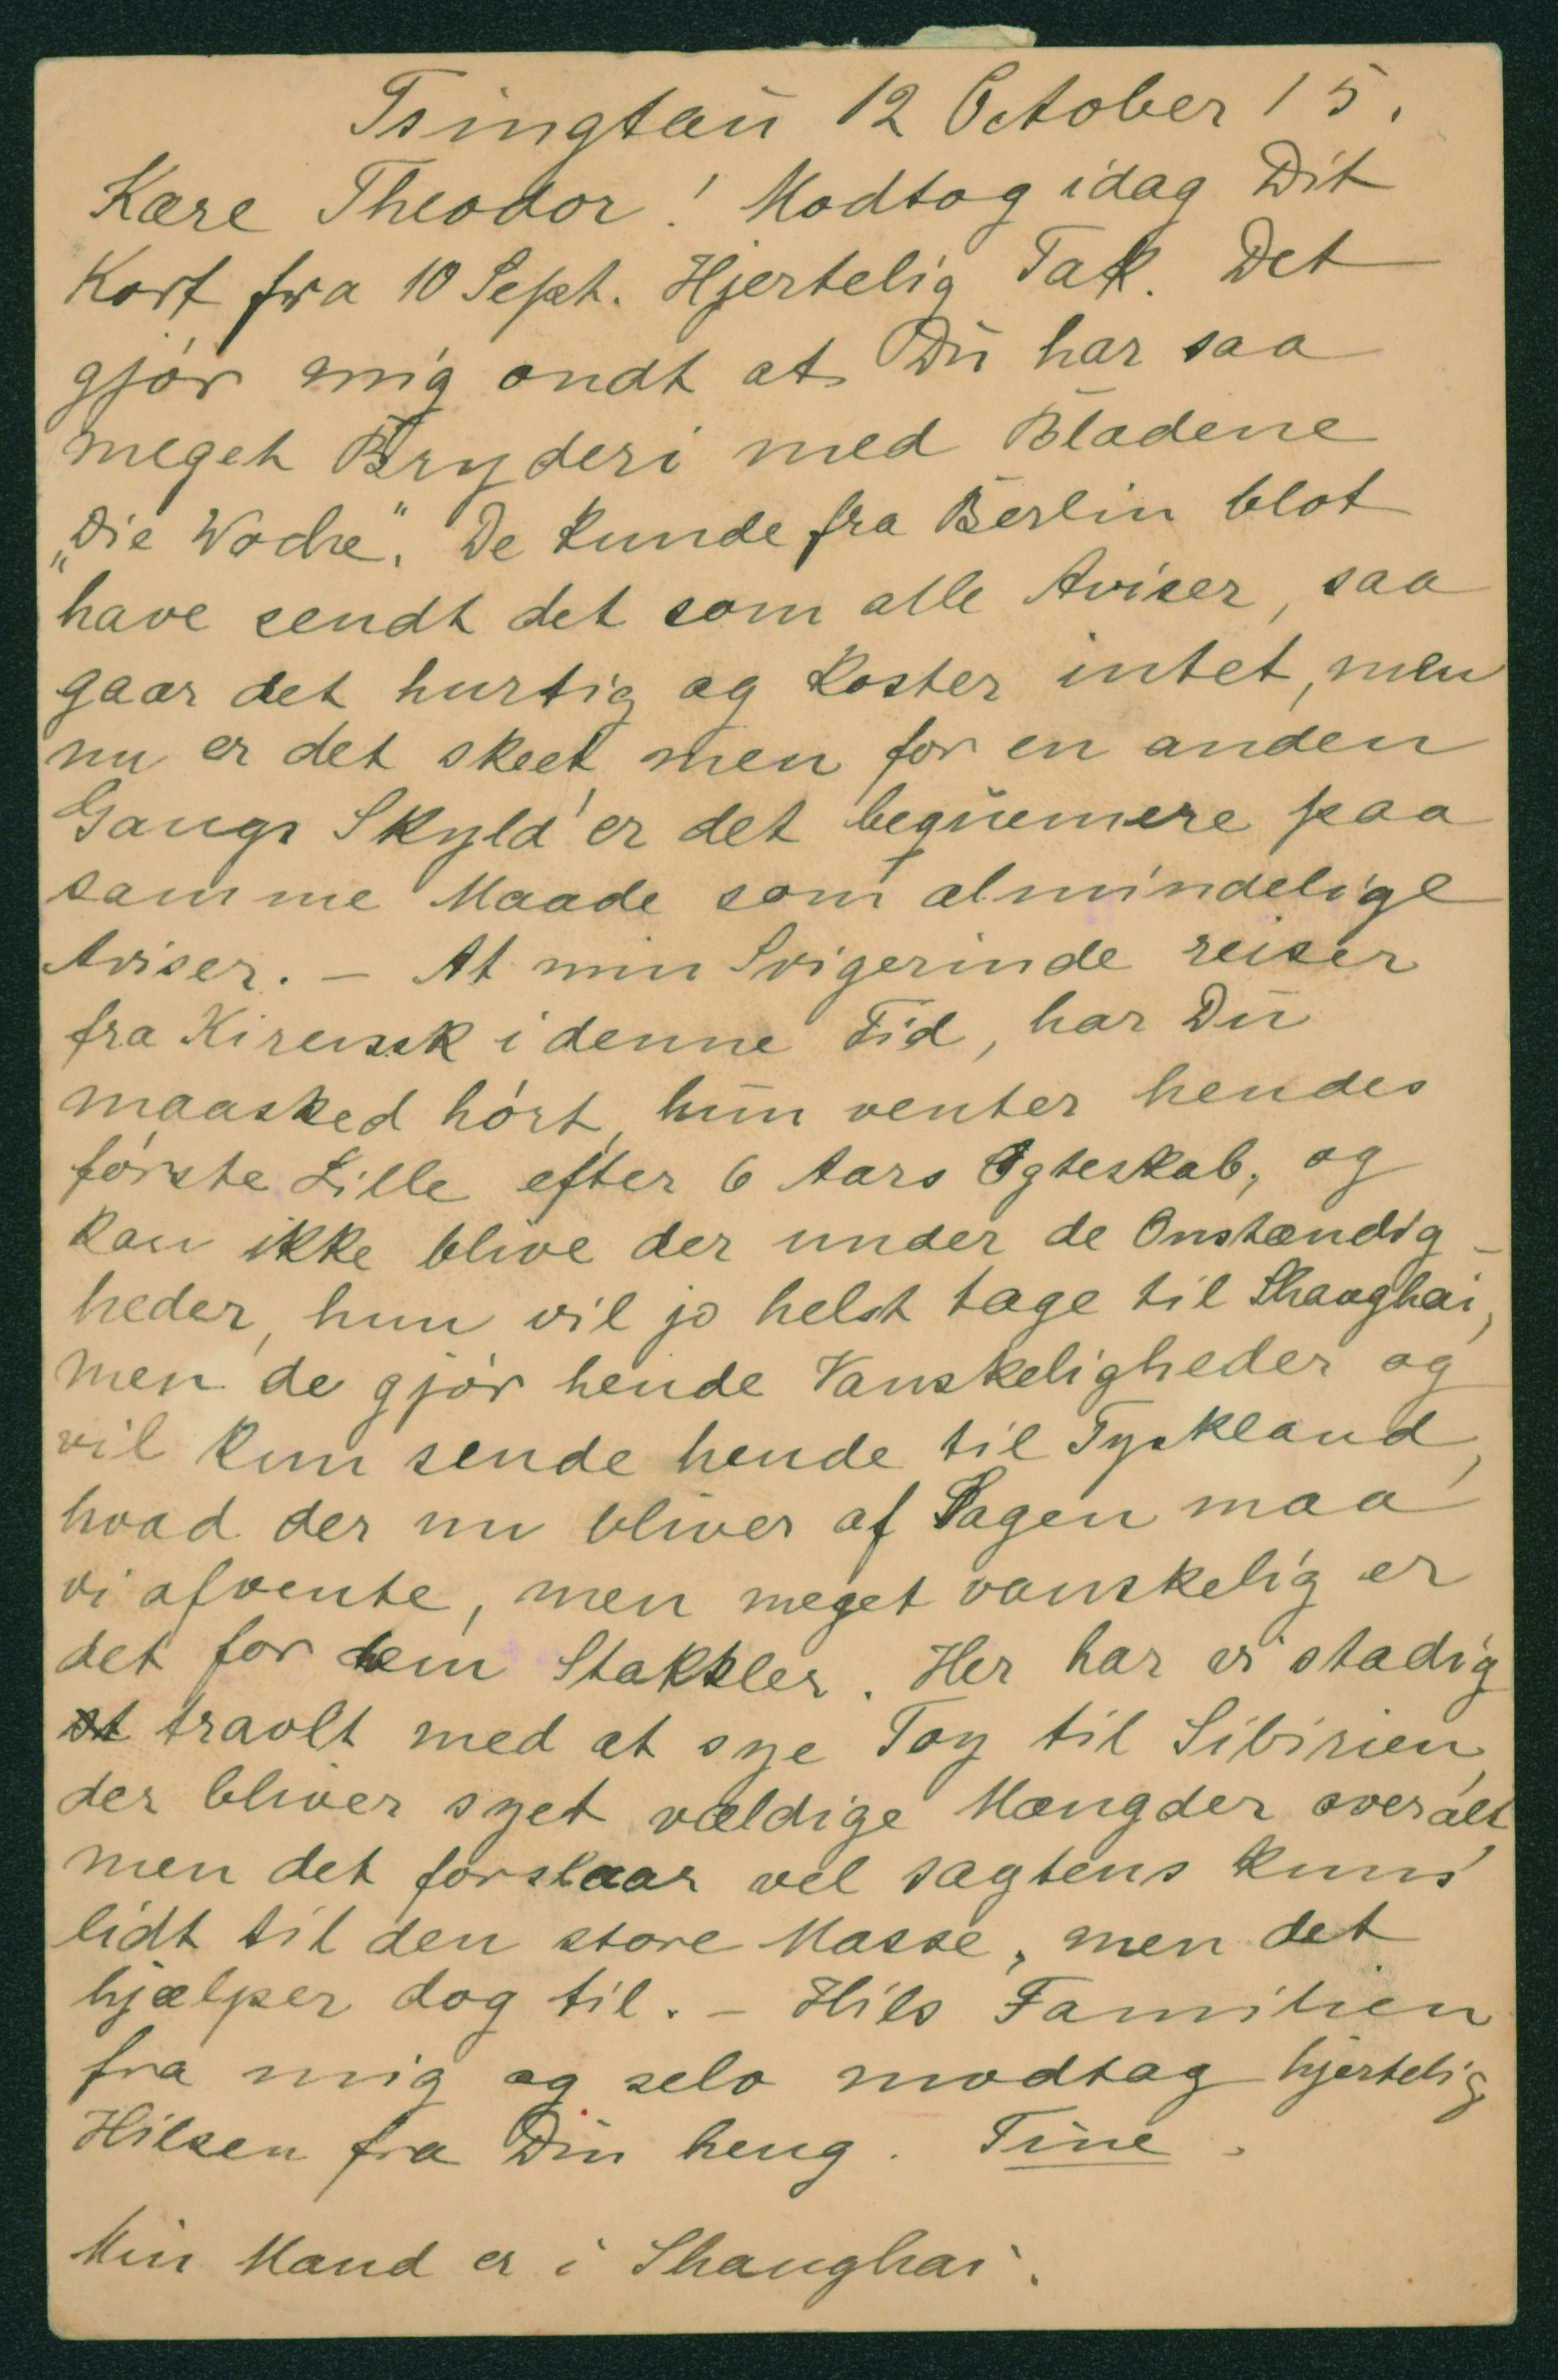 Tsingtaū 12 October 15.
Kære Theodor! Modtog idag Dit
Kort fra 10 Sept. Hjertelig Tak. Det
gjór mig ondt at Dū har saa
meget Bryderi med Bladene
„Die Woche". De kunde fra Berlin blot
have sendt det som alle Aviser, saa
gaar det hurtig og koster intet, men
nu er det skeet, men for en anden
Gangs Skyld er det beqūemere paa
samme Maade som almindelige
Aviser. – At min Svigerinde reiser
fra Kirensk i denne Tid, har Dū
maasked hórt, hūn venter hendes
fórste Lille efter 6 Aars Ægteskab, og
kan ikke blive der under de Omstændig-
heder, hun vil jo helst tage til Shanghai,
men de gjór hende Vanskeligheder og
vil kun sende hende til Tyskland,
hvad der nu bliver af Sagen maa
vi afvente, men meget vanskelig er
det for dem Stakkler. Her har vi stadig
travlt med at sye Toy til Sibirien,
der bliver syet vældige Mængder overalt,
men det forslaar vel sagtens kuns
lidt til den store Masse, men det
hjælper dog til. – Hils Familien
fra mig og selv modtag hjertelig
Hilsen fra Din heng. Tine.
Min Mand er i Shanghai.